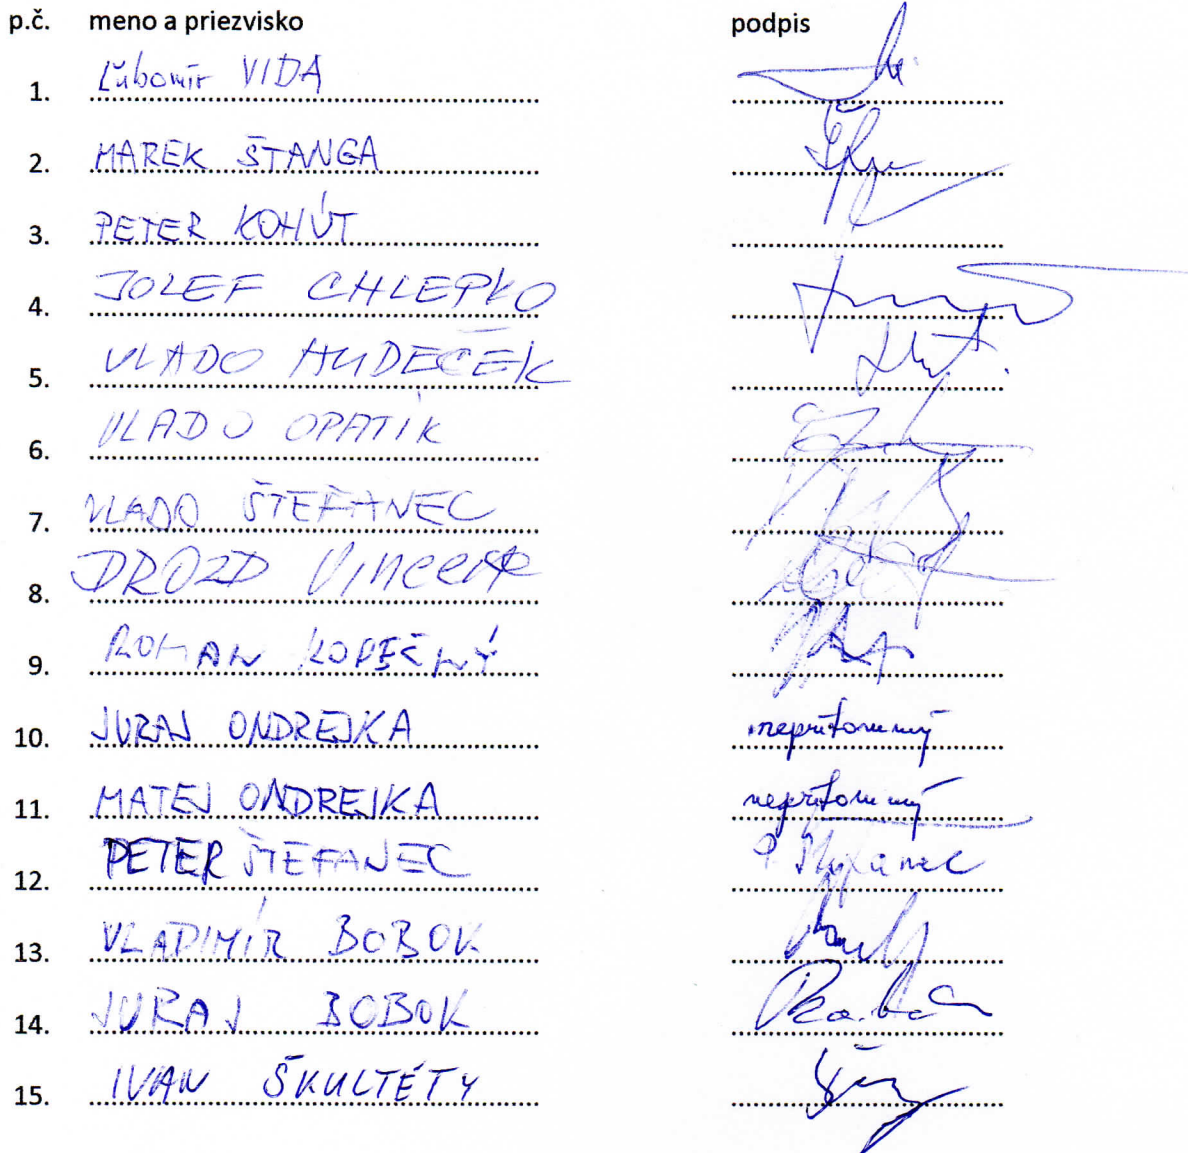 p.č. meno a priezvisko podpis
1. Ľubomír VIDA
2. MAREK ŠTANGA
3. PETER KOHÚT
4. JOZEF CHLEPKO
5. VLADO HUDEČEK
6. VLADO OPATIK
7. VLADO ŠTEFANEC
8. DROZD Vincent
9. ROMAN KOPEČNÝ
10. JURAJ ONDREJKA neprítomný
11. MATEJ ONDREJKA neprítomný
12. PETER ŠTEFANEC P Štefanec
13. VLADIMÍR BOBOK
14. JURAJ BOBOK
15. IVAN ŠKULTÉTY